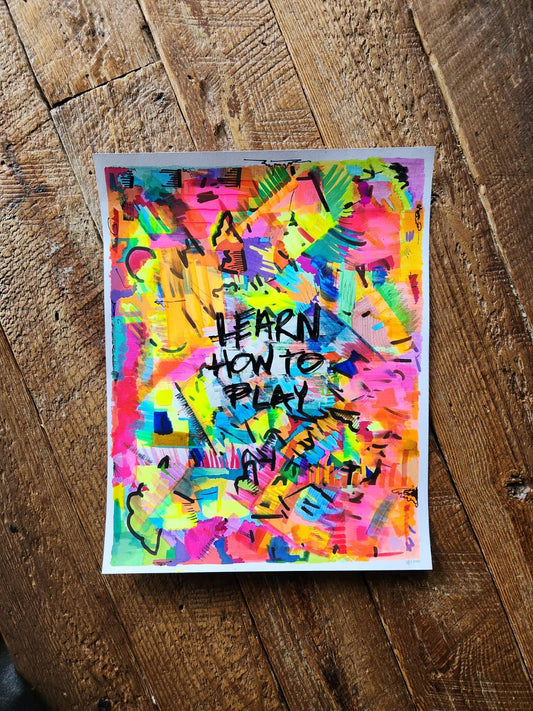 LEARN
HOW TO
PLAY